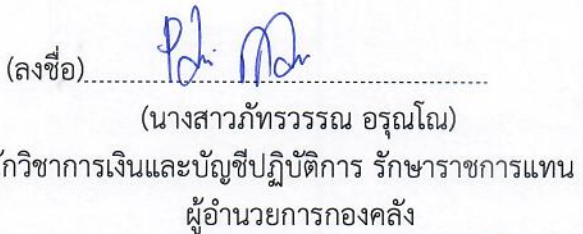 (ลงชื่อ)
(นางสาวภัทรวรรณ อรุณโณ)
กวิชาการเงินและบัญชีปฏิบัติการ รักษาราชการแทน
ผู้อำนวยการกองคลัง